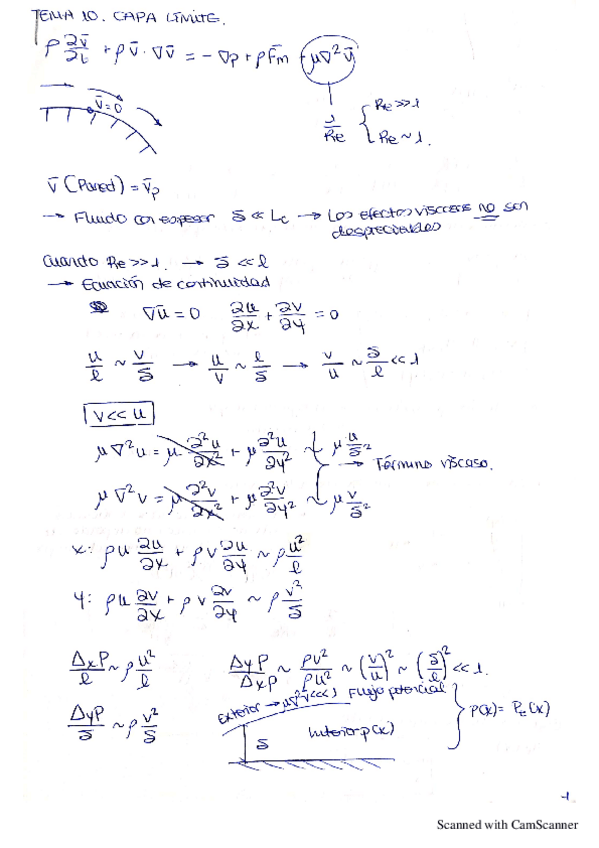 TEMA 10. CAPA LÍMITE.
ρ ∂v̄/∂t + ρ v̄ · ∇v̄ = - ∇p + ρF̄m + μ∇²v̄
v̄=0
1/Re { Re >> 1
Re ~ 1.
v̄ (Pared) = v̄p
→ Fluido con espesor δ << Lc → Los efectos viscosos no son
despreciables
Cuando Re >> 1. → δ << l
→ Ecuación de continuidad
∇ū = 0 ∂u/∂x + ∂v/∂y = 0
u/l ~ v/δ → u/v ~ l/δ → v/u ~ δ/l << 1
v << u
μ∇²u = μ ∂²u/∂x² + μ ∂²u/∂y² ~ μ u/δ²
→ Término viscoso.
μ∇²v = μ ∂²v/∂x² + μ ∂²v/∂y² ~ μ v/δ²
x: ρu ∂u/∂x + ρv ∂u/∂y ~ ρ u²/l
y: ρu ∂v/∂x + ρv ∂v/∂y ~ ρ v²/δ
ΔxP/l ~ ρ u²/l ΔyP/ΔxP ~ ρv²/ρu² ~ (v/u)² ~ (δ/l)² << 1.
Exterior → μ∇²v <<) Flujo potencial
ΔyP/δ ~ ρ v²/δ δ Interior p(x) } p(x) = Pe(x)
-1
Scanned with CamScanner